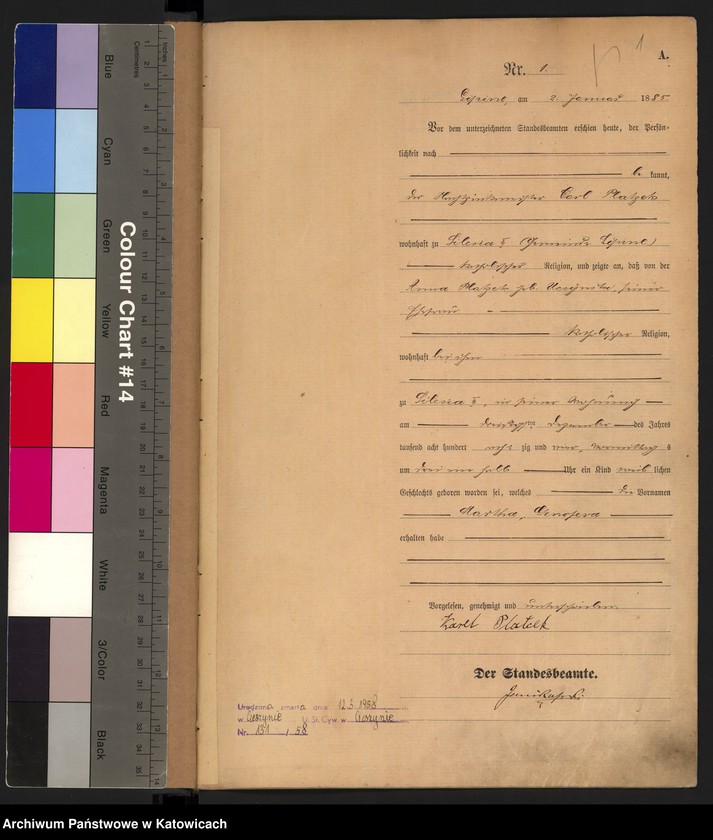 Blue
Cyan
Green
Yellow
Red
Magenta
White
3/Color
Black
Colour Chart #14
Centimetres
Inches
A.
1
Nr. 1.
Lipine, am 2. Januar 1885
Vor dem unterzeichneten Standesbeamten erschien heute, der Persön-
lichkeit nach
be kannt,
der Carl Platzek
wohnhaft zu Silesia (Gemeinde Lipine)
katholischer Religion, und zeigte an, daß von der
Anna Platzek geb. seiner
Ehefrau
katholischer Religion,
wohnhaft bei ihm
zu Silesia in seiner Wohnung
am Dezember des Jahres
tausend acht hundert acht zig und vier, Vormittag s
um drei ein halb Uhr ein Kind weib lichen
Geschlechts geboren worden sei, welches die Vornamen
Martha,
erhalten habe
Vorgelesen, genehmigt und unterschrieben
Karl Platek
Der Standesbeamte.
Urodzona zmarła dnia 12.3.1958
w Cieszynie U. St. Cyw. w Cieszynie
Nr. 131 / 58
Archiwum Państwowe w Katowicach